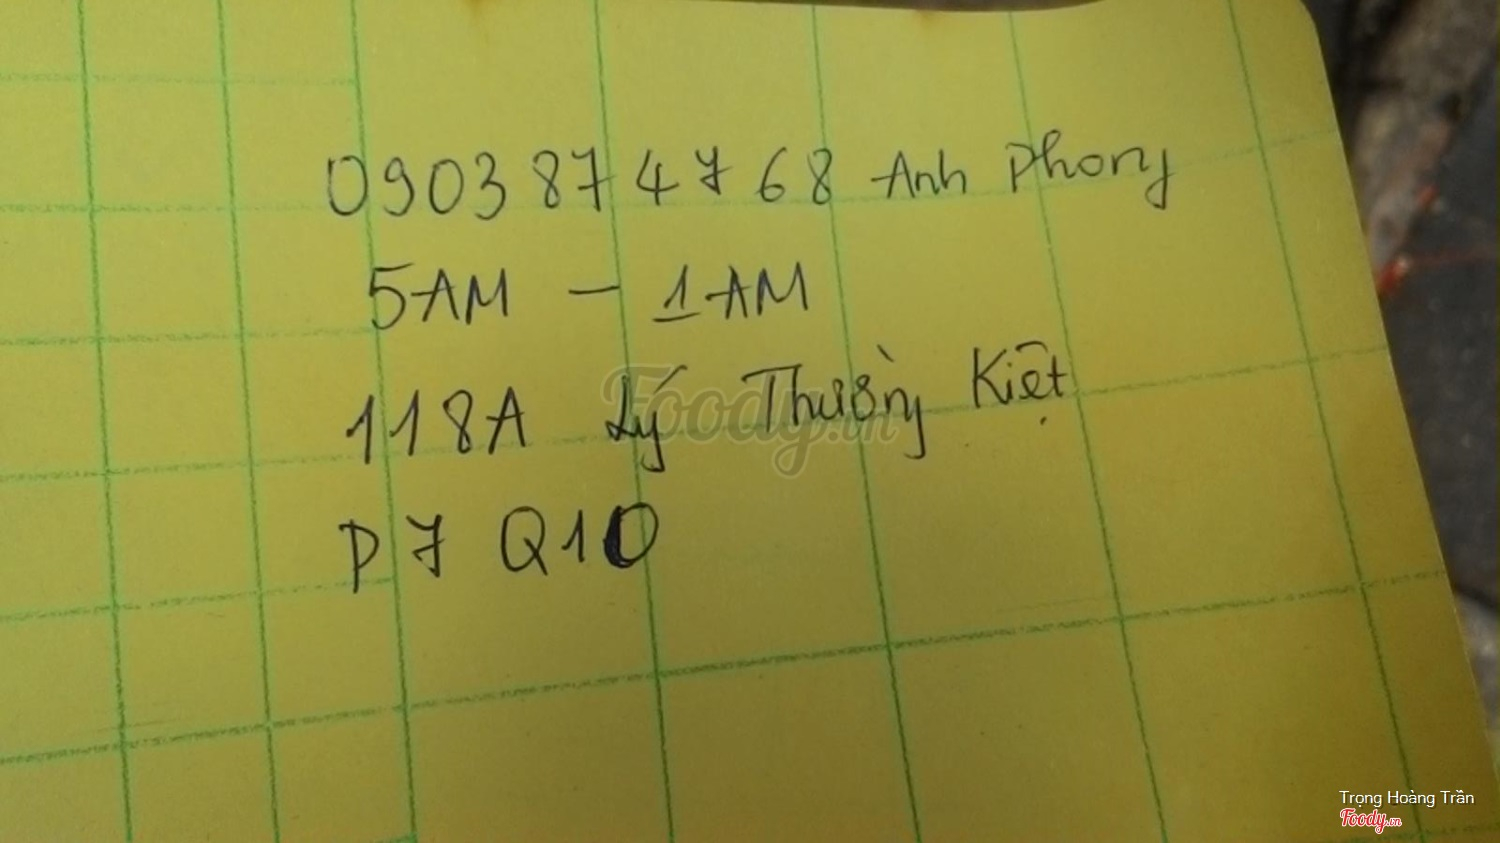 0903 874 768 Anh Phong
5AM - 1AM
118A Lý Thường Kiệt
P7 Q10
Foody.vn
Trọng Hoàng Trần
Foody.vn